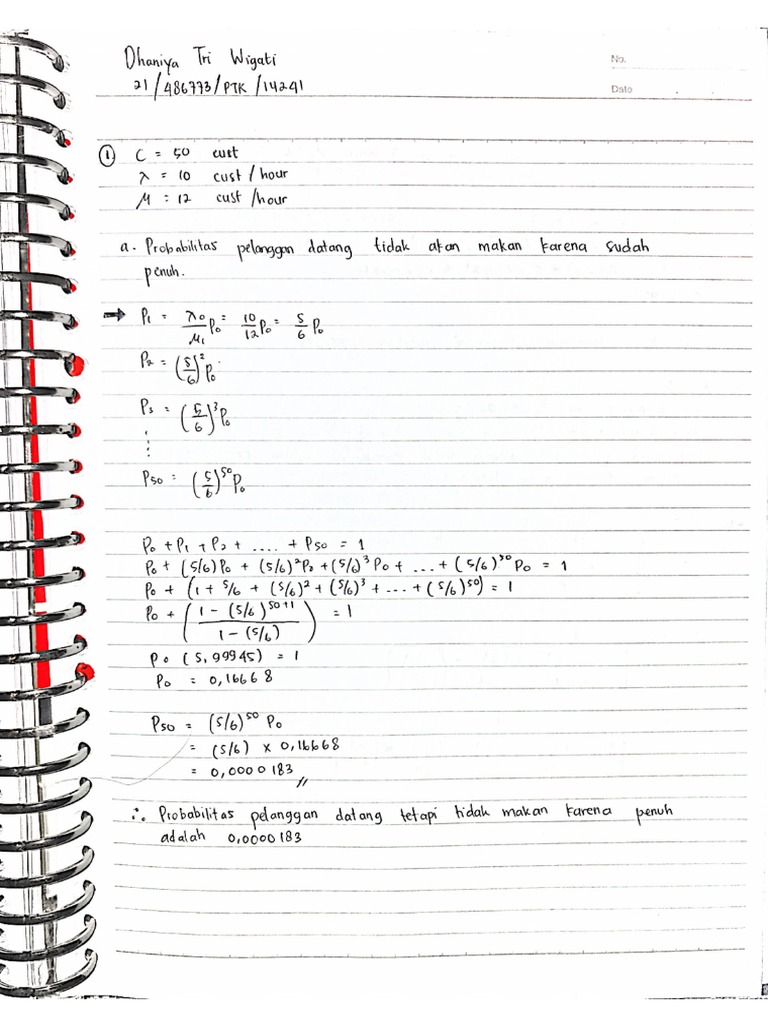 Dhaniya Tri Wigati
21/486773/PTK/14241
No.
Date
① C = 50 cust
λ = 10 cust / hour
μ = 12 cust /hour
a. Probabilitas pelanggan datang tidak akan makan karena sudah
penuh.
→ P₁ = λ₀/μ₁ P₀ = 10/12 P₀ = 5/6 P₀
P₂ = (5/6)² P₀
P₃ = (5/6)³ P₀
⋮
P₅₀ = (5/6)⁵⁰ P₀
P₀ + P₁ + P₂ + .... + P₅₀ = 1
P₀ + (5/6)P₀ + (5/6)² P₂ + (5/6)³ P₀ + ... + (5/6)⁵⁰ P₀ = 1
P₀ + (1 + 5/6 + (5/6)² + (5/6)³ + ... + (5/6)⁵⁰) = 1
P₀ + ((1 - (5/6)⁵⁰⁺¹)/(1 - (5/6))) = 1
P₀ (5,99945) = 1
P₀ = 0,16668
P₅₀ = (5/6)⁵⁰ P₀
= (5/6) × 0,16668
= 0,0000183 //
∴ Probabilitas pelanggan datang tetapi tidak makan karena penuh
adalah 0,0000183